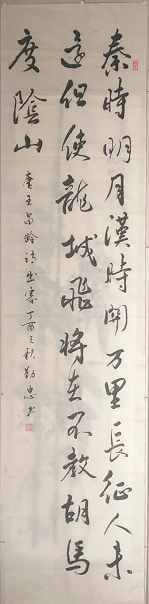 秦時明月漢時關万里長征人未
還但使龍城飛将在不教胡馬
度陰山
唐王昌齡詩出塞丁酉之秋勤忠书